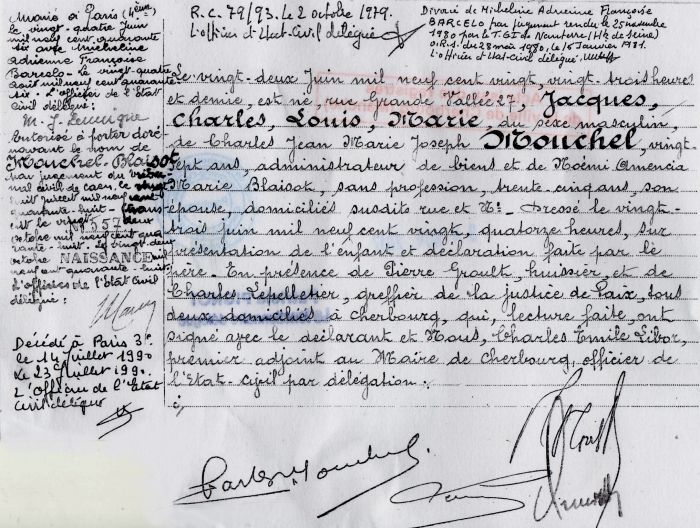 Marié à Paris (4ème)
le vingt-quatre Juin
mil neuf cent quarante
six avec Micheline
Adrienne Françoise
Barcelo - le vingt-quatre
août mil neuf cent quarante
six - L'officier de l'Etat
Civil délégué :
Autorisé à porter doré-
navant le nom de
Mouchel-Blaisot
par jugement du
civil de Caen, le vingt
huit juillet mil neuf cent
quarante-huit
et le vingt deux
octobre mil neuf cent qua
rante-huit - le vingt-deux
octobre mil
neuf cent quarante-huit
L'officier de l'Etat Civil
délégué :
N° 557
NAISSANCE
Décédé à Paris 3e
le 14 Juillet 1990
Le 23 Juillet 1990.
L'Officier de l'Etat
Civil délégué
R.C. 79/93. le 2 octobre 1979.
L'officier d'Etat-Civil délégué
Divorcé de Micheline Adrienne Françoise
BARCELO par jugement rendu le 25 novembre
1980 par le T.G.I de Nanterre (Hts de Seine)
O.R.1. du 28 mai 1980, le 16 Janvier 1981.
L'officier d'Etat-Civil délégué,
Le vingt-deux Juin mil neuf cent vingt, vingt-trois heures
et demie, est né, rue Grande Vallée 27, Jacques,
Charles, Louis, Marie, du sexe masculin,
de Charles Jean Marie Joseph Mouchel, vingt-
sept ans, administrateur de biens et de Noémi Amencia
Marie Blaisot, sans profession, trente cinq ans, son
épouse, domiciliés susdits rue et N°- Dressé le vingt-
trois juin mil neuf cent vingt, quatorze heures, sur
présentation de l'enfant et déclaration faite par le
père. - En présence de Pierre Groult, huissier, et de
Charles Lepelletier, greffier de la justice de Paix, tous
deux domiciliés à Cherbourg, qui, lecture faite, ont
signé avec le déclarant et Nous, Charles Emile Libor,
premier adjoint au Maire de Cherbourg, officier de
l'Etat-Civil par délégation.